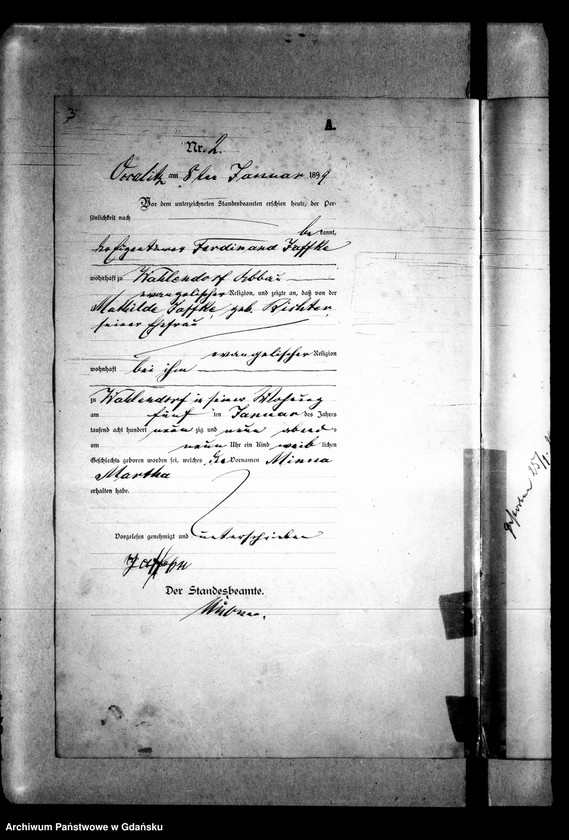 A.
Nr. 2.
am 8ten Januar 1899.
Vor dem unterzeichneten Standesbeamten erschien heute, der Per-
sönlichkeit nach
be kannt,
der Eigentümer Ferdinand Jaffke
wohnhaft zu Wahlendorf Abbau
evangelischer Religion, und zeigte an, daß von der
Mathilde Jaffke, geb. Richter,
seiner Ehefrau
evangelischer Religion
wohnhaft bei ihm
zu Wahlendorf in seiner Wohnung
am fünf ten Januar des Jahres
tausend acht hundert neun zig und neun abends
um neun Uhr ein Kind weib lichen
Geschlechts geboren worden sei, welches die Vornamen Minna
Martha
erhalten habe.
Vorgelesen genehmigt und unterschrieben
Der Standesbeamte.
gestorben
Archiwum Państwowe w Gdańsku